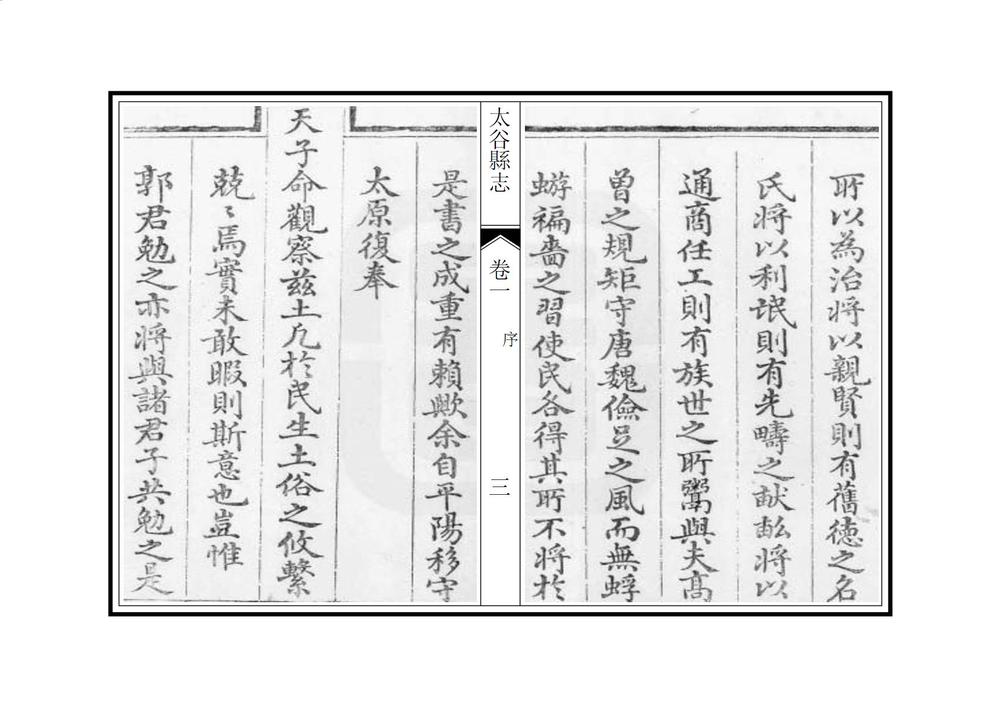 所以為治將以親賢則有舊德之名
氏將以利氓則有先疇之畎畝將以
通商任工則有族世之所鬻與夫高
曾之規矩守唐魏儉㠯之風而無蜉
蝣褊嗇之習使民各得其所不將於
太谷縣志
卷一
序
三
是書之成重有賴歟余自平陽移守
太原復奉
天子命觀察茲土凡於民生土俗之攸繫
兢〻焉實未敢暇則斯意也豈惟
郭君勉之亦將與諸君子共勉之是